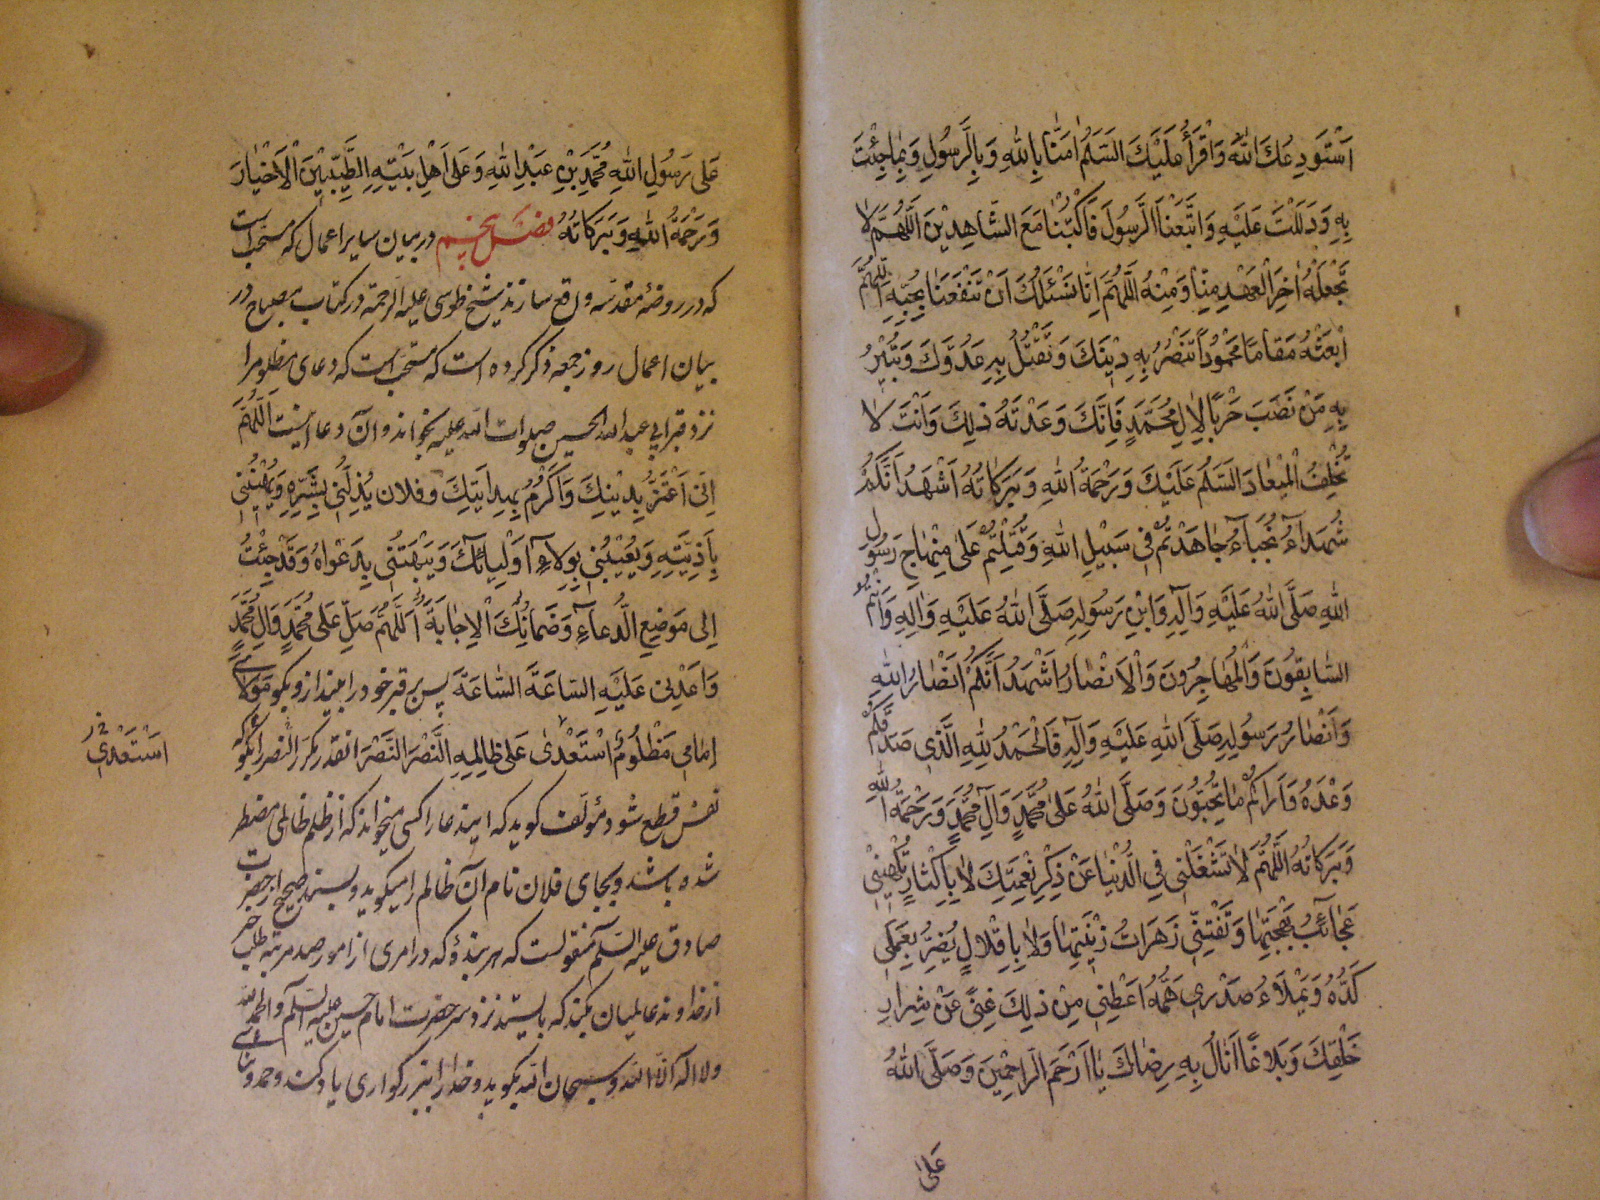 اَسْتَوْدِعُكَ اللّٰهَ وَاَقْرَأُ عَلَيْكَ السَّلَمُ اٰمَنَّا بِاللّٰهِ وَبِالرَّسُولِ وَبِمَا جِئْتَ
بِهِ وَدَلَلْتَ عَلَيْهِ وَاتَّبَعْنَا الرَّسُولَ فَاكْتُبْنَا مَعَ الشَّاهِدِينَ اَللّٰهُمَّ لَا
تَجْعَلْهُ اٰخِرَ الْعَهْدِ مِنَّا وَمِنْهُ اَللّٰهُمَّ اِنَّا نَسْئَلُكَ اَنْ تَنْفَعَنَا بِحُبِّهِ اَللّٰهُمَّ
ابْعَثْهُ مَقَامًا مَحْمُودًا تَنْصُرُ بِهِ دِينَكَ وَتَقْتُلُ بِهِ عَدُوَّكَ وَتُبِيْرُ
بِهِ مَنْ نَصَبَ حَرْبًا لِاٰلِ مُحَمَّدٍ فَاِنَّكَ وَعَدْتَهُ ذٰلِكَ وَاَنْتَ لَا
تُخْلِفُ الْمِيْعَادَ السَّلَمُ عَلَيْكَ وَرَحْمَةُ اللّٰهِ وَبَرَكَاتُهُ اَشْهَدُ اَنَّكُمْ
شُهَدَآءُ نُجَبَآءُ جَاهَدْتُمْ فِي سَبِيلِ اللّٰهِ وَقُتِلْتُمْ عَلٰى مِنْهَاجِ رَسُولِ
اللّٰهِ صَلَّى اللّٰهُ عَلَيْهِ وَاٰلِهِ وَابْنِ رَسُولِهِ صَلَّى اللّٰهُ عَلَيْهِ وَاٰلِهِ وَاَنْتُمُ
السَّابِقُونَ وَالْمُهَاجِرُونَ وَالْاَنْصَارُ اَشْهَدُ اَنَّكُمْ اَنْصَارُ اللّٰهِ
وَاَنْصَارُ رَسُولِهِ صَلَّى اللّٰهِ عَلَيْهِ وَاٰلِهِ فَالْحَمْدُ لِلّٰهِ الَّذِي صَدَقَكُمْ
وَعْدَهُ وَاَرَاكُمْ مَا تُحِبُّونَ وَصَلَّى اللّٰهُ عَلٰى مُحَمَّدٍ وَاٰلِ مُحَمَّدٍ وَرَحْمَةُ اللّٰهِ
وَبَرَكَاتُهُ اَللّٰهُمَّ لَا تَشْغَلْنِي فِي الدُّنْيَا عَنْ ذِكْرِ نِعْمَتِكَ لَا بِاِكْثَارٍ تُلْهِينِي
عَجَائِبُ بَهْجَتِهَا وَتَفْتِنِّي زَهَرَاتُ زِينَتِهَا وَلَا بِاِقْلَالٍ يُضِرُّ بِعَمَلِي
كَدُّهُ وَيَمْلَاءُ صَدْرِي هَمُّهُ اَعْطِنِي مِنْ ذٰلِكَ غِنًى عَنْ شِرَارِ
خَلْقِكَ وَبَلَاغًا اَنَالُ بِهِ رِضَاكَ يَا اَرْحَمَ الرَّاحِمِينَ وَصَلَّى اللّٰهُ
عَلٰى
عَلٰى رَسُولِ اللّٰهِ مُحَمَّدِ بْنِ عَبْدِ اللّٰهِ وَعَلٰى اَهْلِ بَيْتِهِ الطَّيِّبِيْنَ الْاَخْيَارَ
وَرَحْمَةُ اللّٰهِ وَبَرَكَاتُهُ فصل پنجم در بیان سایر اعمال که مستحب است
که در روضهٔ مقدسه واقع سازند شیخ طوسی علیه الرحمة در کتاب مصباح در
بیان اعمال روز جمعه ذکر کرده است که مستحب است که دعای مظلوم را
نزد قبر ابی عبد الله الحسین صلوات الله علیه بخواند و آن دعا اینست اَللّٰهُمَّ
اِنِّي اَعْتَزُّ بِدِينِكَ وَاَكْرُمُ بِهِدَايَتِكَ وفلان يُذِلُّنِي بِشَرِّهِ وَيُهِينُنِي
بِاَذِيَّتِهِ وَيُعِيْبُنِي بِوِلَاءِ اَوْلِيَائِكَ وَيَبْهَتُنِي بِدَعْوَاهُ وَقَدْ جِئْتُ
اِلٰى مَوْضِعِ الدُّعَاءِ وَضَمَانُكَ الْاِجَابَةَ اَللّٰهُمَّ صَلِّ عَلٰى مُحَمَّدٍ وَاٰلِ مُحَمَّدٍ
وَاَعْدِنِي عَلَيْهِ السَّاعَةَ السَّاعَةَ پس بر قبر خود را بیندازد و بگو مَوْلَايَ
اِمَامِي مَظْلُومٌ اسْتَعْدٰى عَلٰى ظَالِمِهِ النَّصْرَ النَّصْرَ انقدر مکرر النصر را بگو که
استعدي خ ز
نفس قطع شود مؤلف کوید که ایندعا را کسی میخواند که از ظلم ظالمی مضطر
شده باشد و بجای فلان نام آن ظالم را میکوید و بسند صحیح از حضرت
صادق علیه السلم منقولست که هر بندهٔ که در امری از امور صد مرتبه طلب خیر
از خداوند عالمیان بکند که بایستد نزد سر حضرت امام حسین علیه السلم و الحمد لله
ولا اله الا الله و سبحان الله بکوید و خدا را ببزرکواری یاد کند و حمد و ثنای